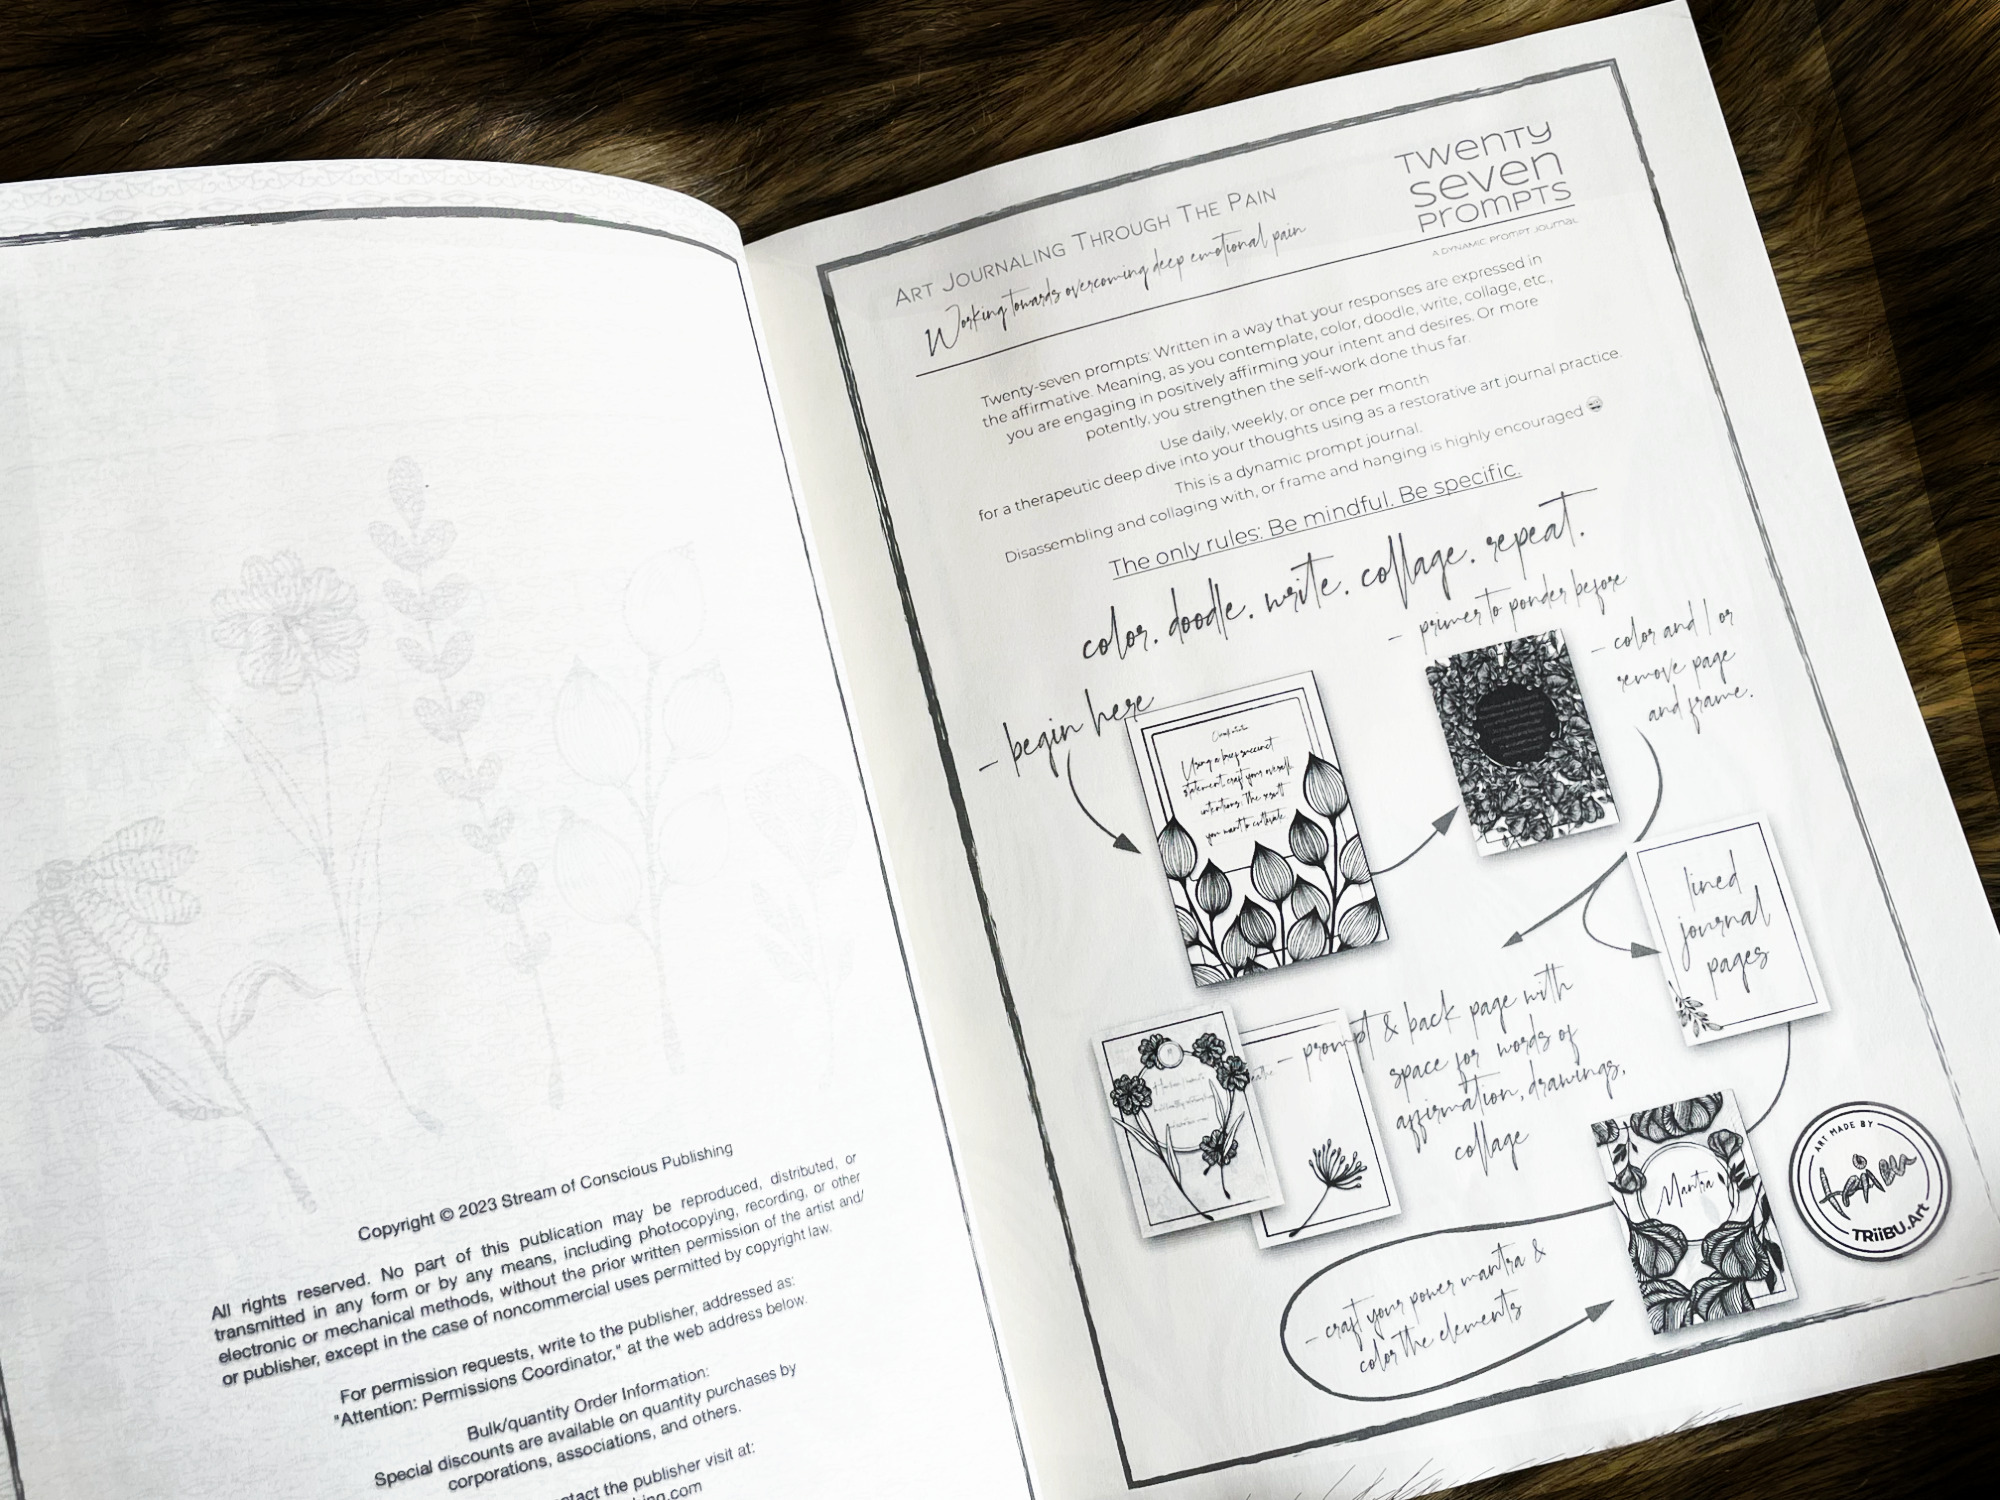 Copyright © 2023 Stream of Conscious Publishing
All rights reserved. No part of this publication may be reproduced, distributed, or
transmitted in any form or by any means, including photocopying, recording, or other
electronic or mechanical methods, without the prior written permission of the artist and/
or publisher, except in the case of noncommercial uses permitted by copyright law.
For permission requests, write to the publisher, addressed as:
"Attention: Permissions Coordinator," at the web address below.
Bulk/quantity Order Information:
Special discounts are available on quantity purchases by
corporations, associations, and others.
the publisher visit at:
Art Journaling Through The Pain
Working towards overcoming deep emotional pain
Twenty
seven
prompts
A DYNAMIC PROMPT JOURNAL
Twenty-seven prompts: Written in a way that your responses are expressed in
the affirmative. Meaning, as you contemplate, color, doodle, write, collage, etc.,
you are engaging in positively affirming your intent and desires. Or more
potently, you strengthen the self-work done thus far.
Use daily, weekly, or once per month
for a therapeutic deep dive into your thoughts using as a restorative art journal practice.
This is a dynamic prompt journal.
Disassembling and collaging with, or frame and hanging is highly encouraged 😄
The only rules: Be mindful. Be specific.
color. doodle. write. collage. repeat.
- begin here
- primer to ponder before
- color and / or
remove page
and frame.
Using a brief succinct
statement, craft your overall
intentions; The result
you want to cultivate.
lined
journal
pages
- prompt & back page with
space for words of
affirmation, drawings,
collage
Mantra
- craft your power mantra &
color the elements
ART MADE BY
TRiiBU.Art